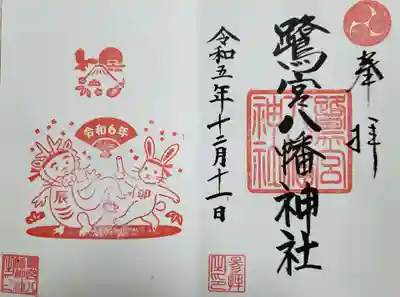 奉拝
鷺宮八幡神社
鷺宮
神社
令和五年十二月十一日
参拝
之印
令和6年
辰
卯